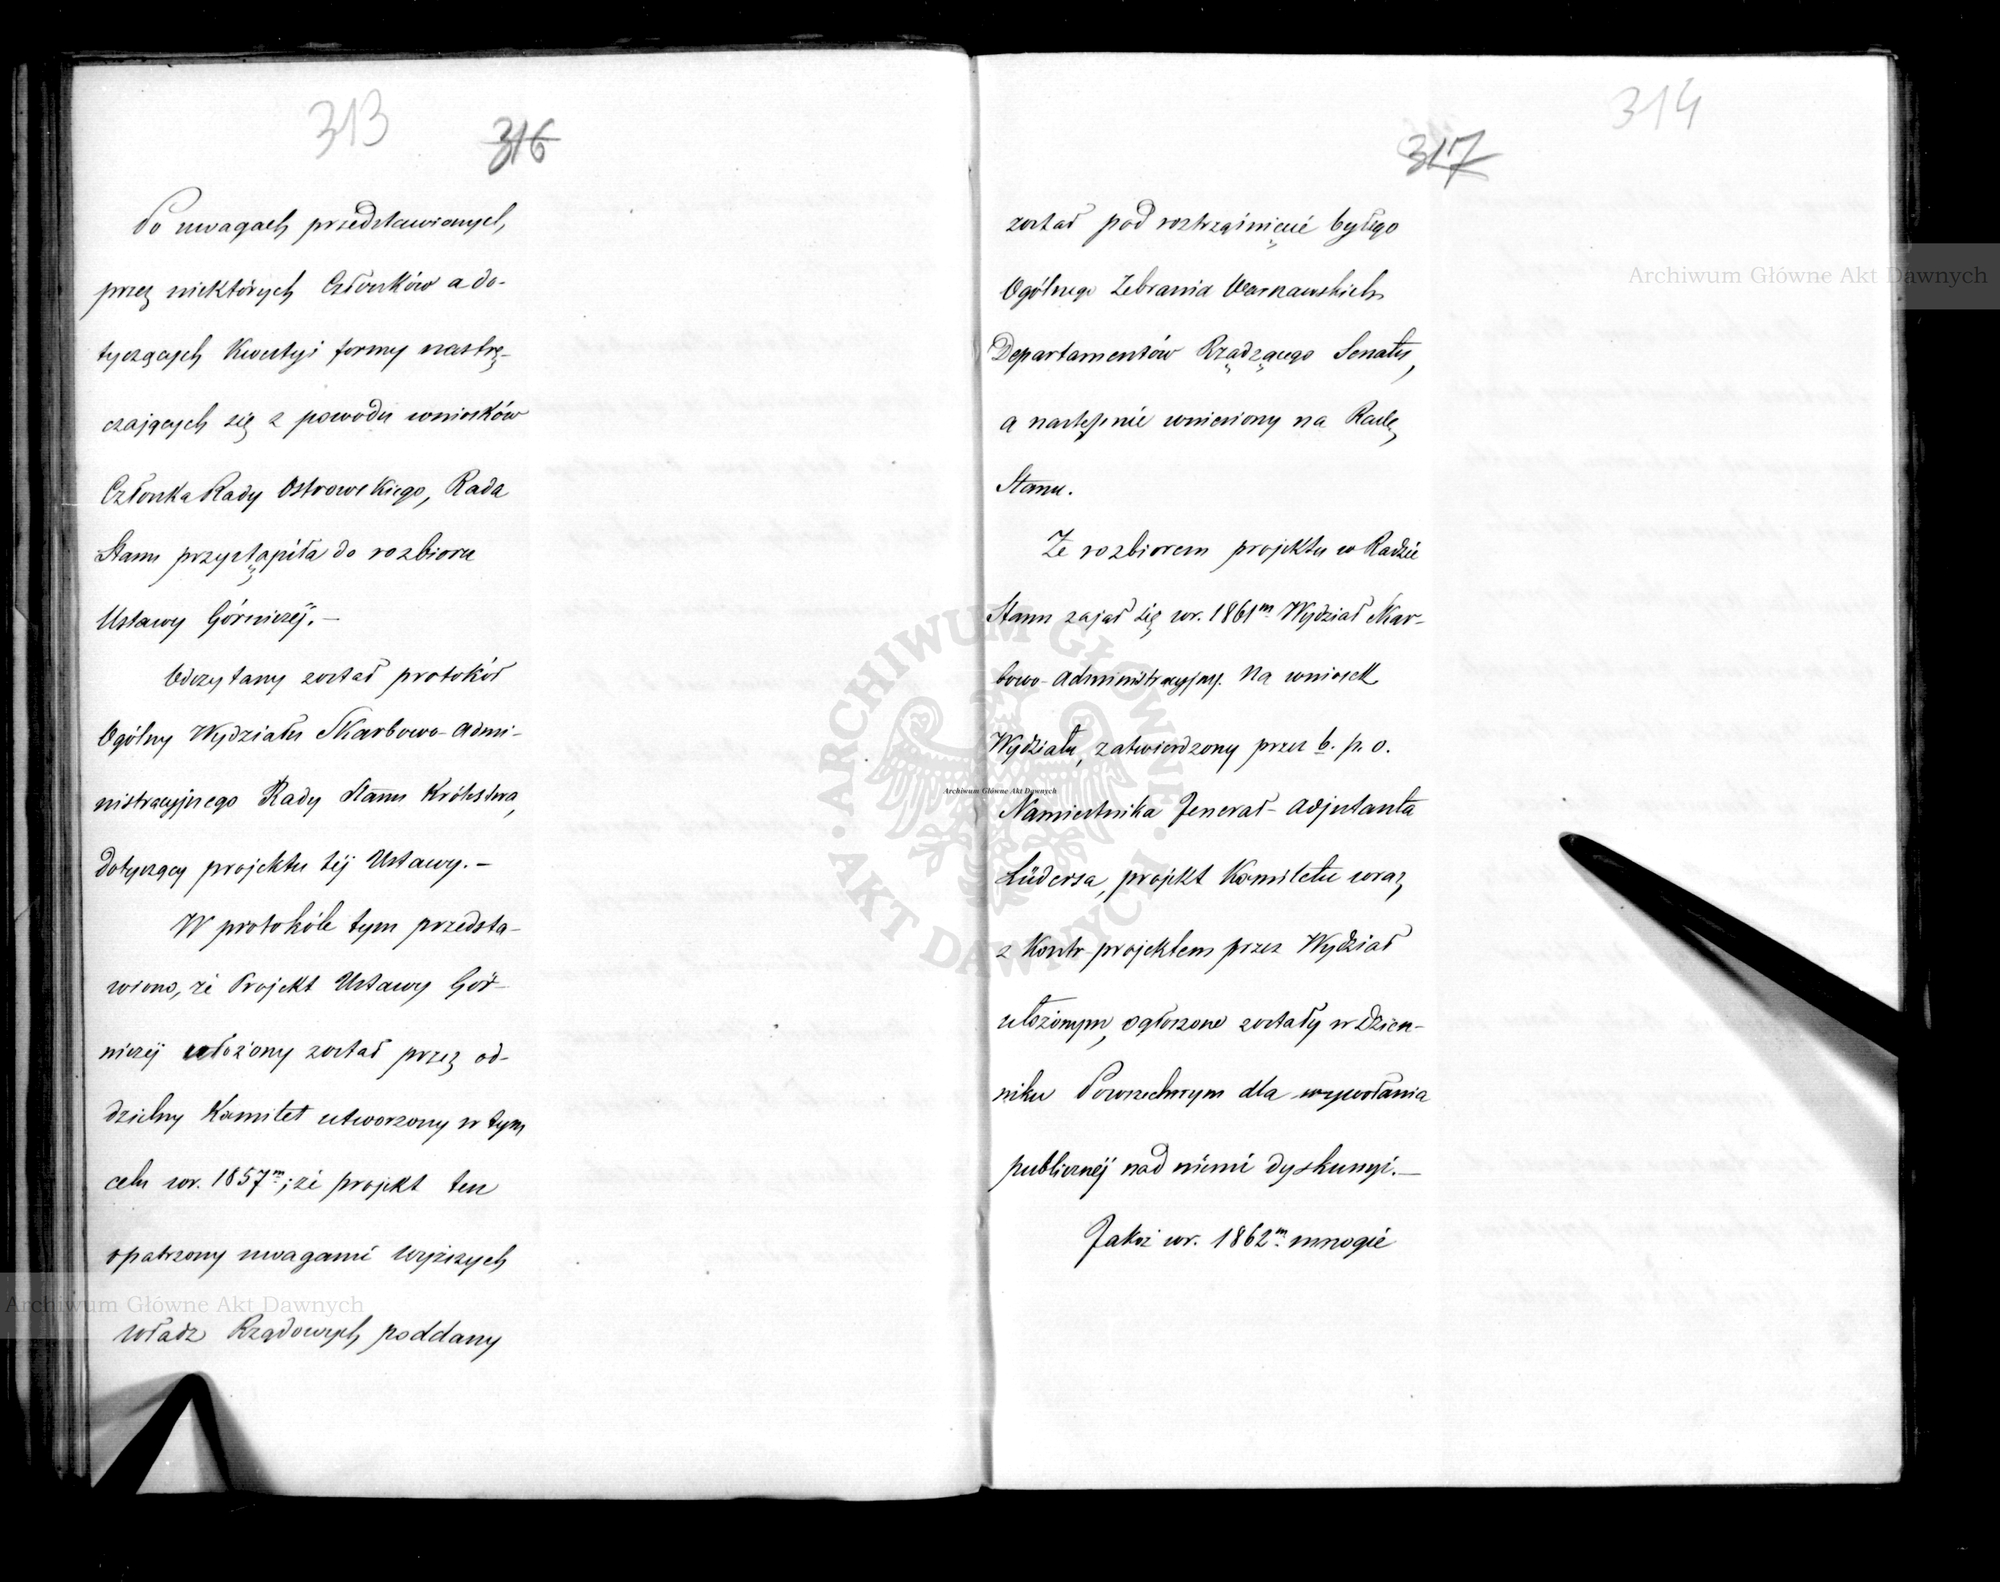 313
316
Po uwagach przedstawionych
przez niektórych Członków a do-
tyczących Kwestyi formy nastrę-
czających się z powodu wniosków
Członka Rady Ostrowskiego, Rada
Stanu przystąpiła do rozbioru
Ustawy Górniczéj.—
Odczytany został protokół
Ogólny Wydziału Skarbowo-Admi-
nistracyjnego Rady Stanu Królestwa,
dotyczący projektu téj Ustawy.—
W protokóle tym przedsta-
wiono, że Projekt Ustawy Gór-
niczéj ułożony został przez od-
dzielny Komitet utworzony w tym
celu w r. 1857m; że projekt ten
opatrzony uwagami wyższych
Władz Rządowych poddany
314
317
został pod roztrząśnięcie byłego
Ogólnego Zebrania Warszawskich
Departamentów Rządzącego Senatu,
a następnie wniesiony na Radę
Stanu.
Ze rozbiorem projektu w Radzie
Stanu zajął się w r. 1861m Wydział Skar-
bowo-Administracyjny. Na wniosek
Wydziału, zatwierdzony przez b. p. o.
Namiestnika Jenerał-Adjutanta
Lüdersa, projekt Komitetu wraz
z Kontr-projektem przez Wydział
ułożonym, ogłoszone zostały w Dzien-
niku Powszechnym dla wywołania
publicznéj nad niemi dyskussyi.—
Jakoż w r. 1862m mnogie
Archiwum Główne Akt Dawnych
Archiwum Główne Akt Dawnych
Archiwum Główne Akt Dawnych
ARCHIWUM GŁÓWNE AKT DAWNYCH